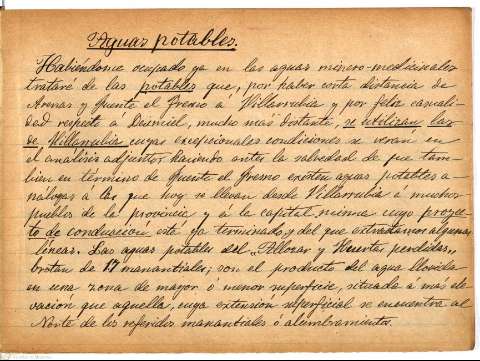 Aguas potables.
Habiéndome ocupado ya en las aguas minero-medicinales
trataré de las potables que, por haber corta distancia de
Arenas y Fuente el Fresno á Villarrubia y por feliz casuali-
dad respecto á Daimiel, mucho más distante, se utilizan las
de Villarrubia cuyas excepcionales condiciones se verán en
el análisis adjunto, haciendo antes la salvedad de que tam-
bien en término de Fuente el Fresno existen aguas potables a-
nálogas a las que hoy se llevan desde Villarrubia á muchos
pueblos de la provincia y á la capital misma cuyo proyec-
to de conducción está ya terminado y del que extractamos algunas
líneas. Las aguas potables del "Allozar y Huertas perdidas"
brotan de 17 manantiales; son el producto del agua llovida
en una zona de mayor ó menor superficie, situada a más ele-
vación que aquella, cuya extensión superficial se encuentra al
Norte de los referidos manantiales ó alumbramientos.